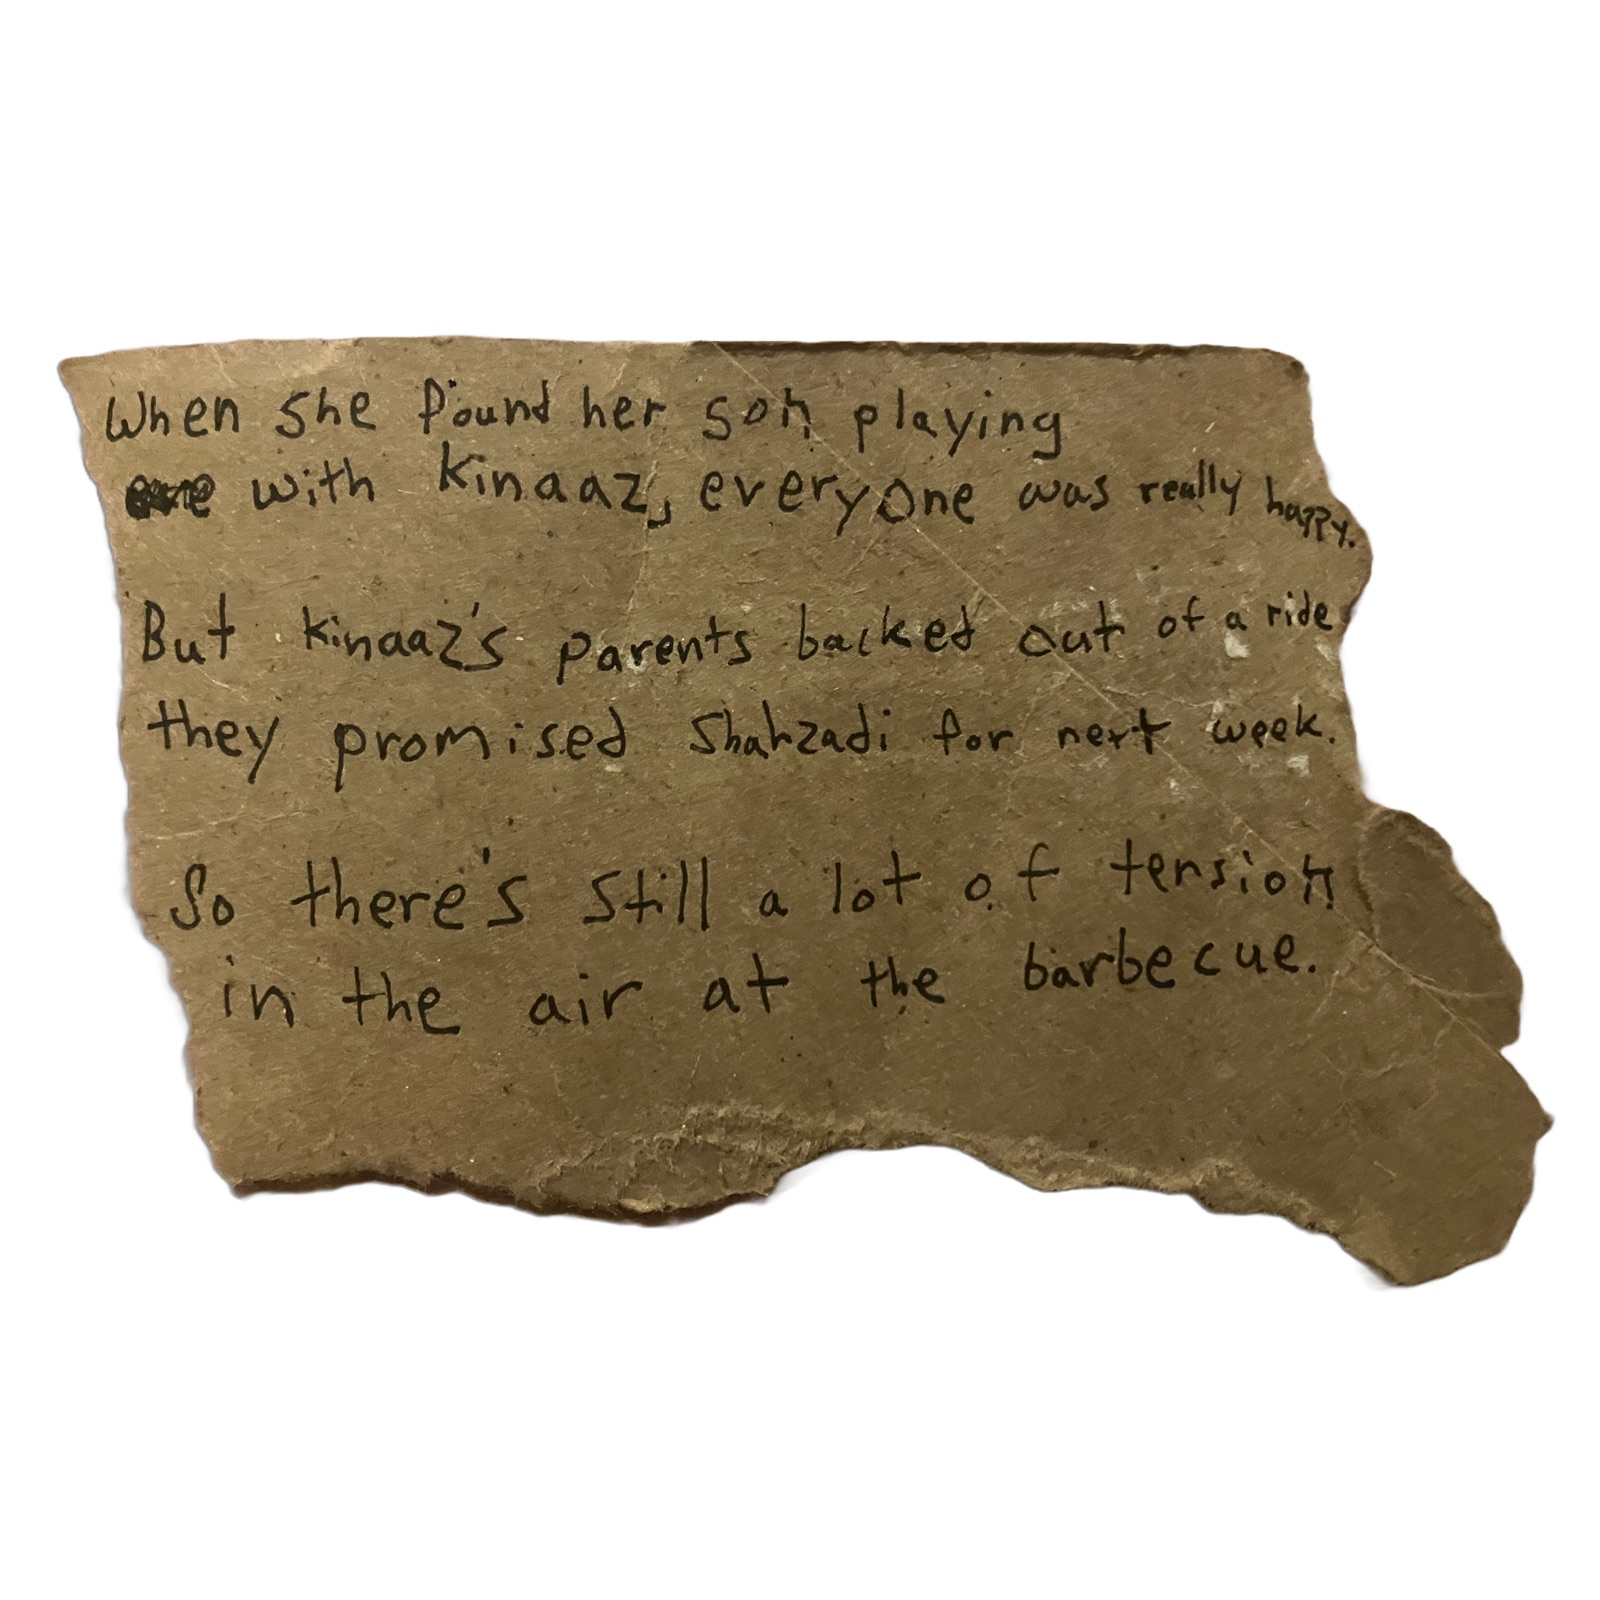 When she found her son playing
with Kinaaz, everyone was really happy.
But Kinaaz's parents backed out of a ride
they promised Shahzadi for next week.
So there's still a lot of tension
in the air at the barbecue.